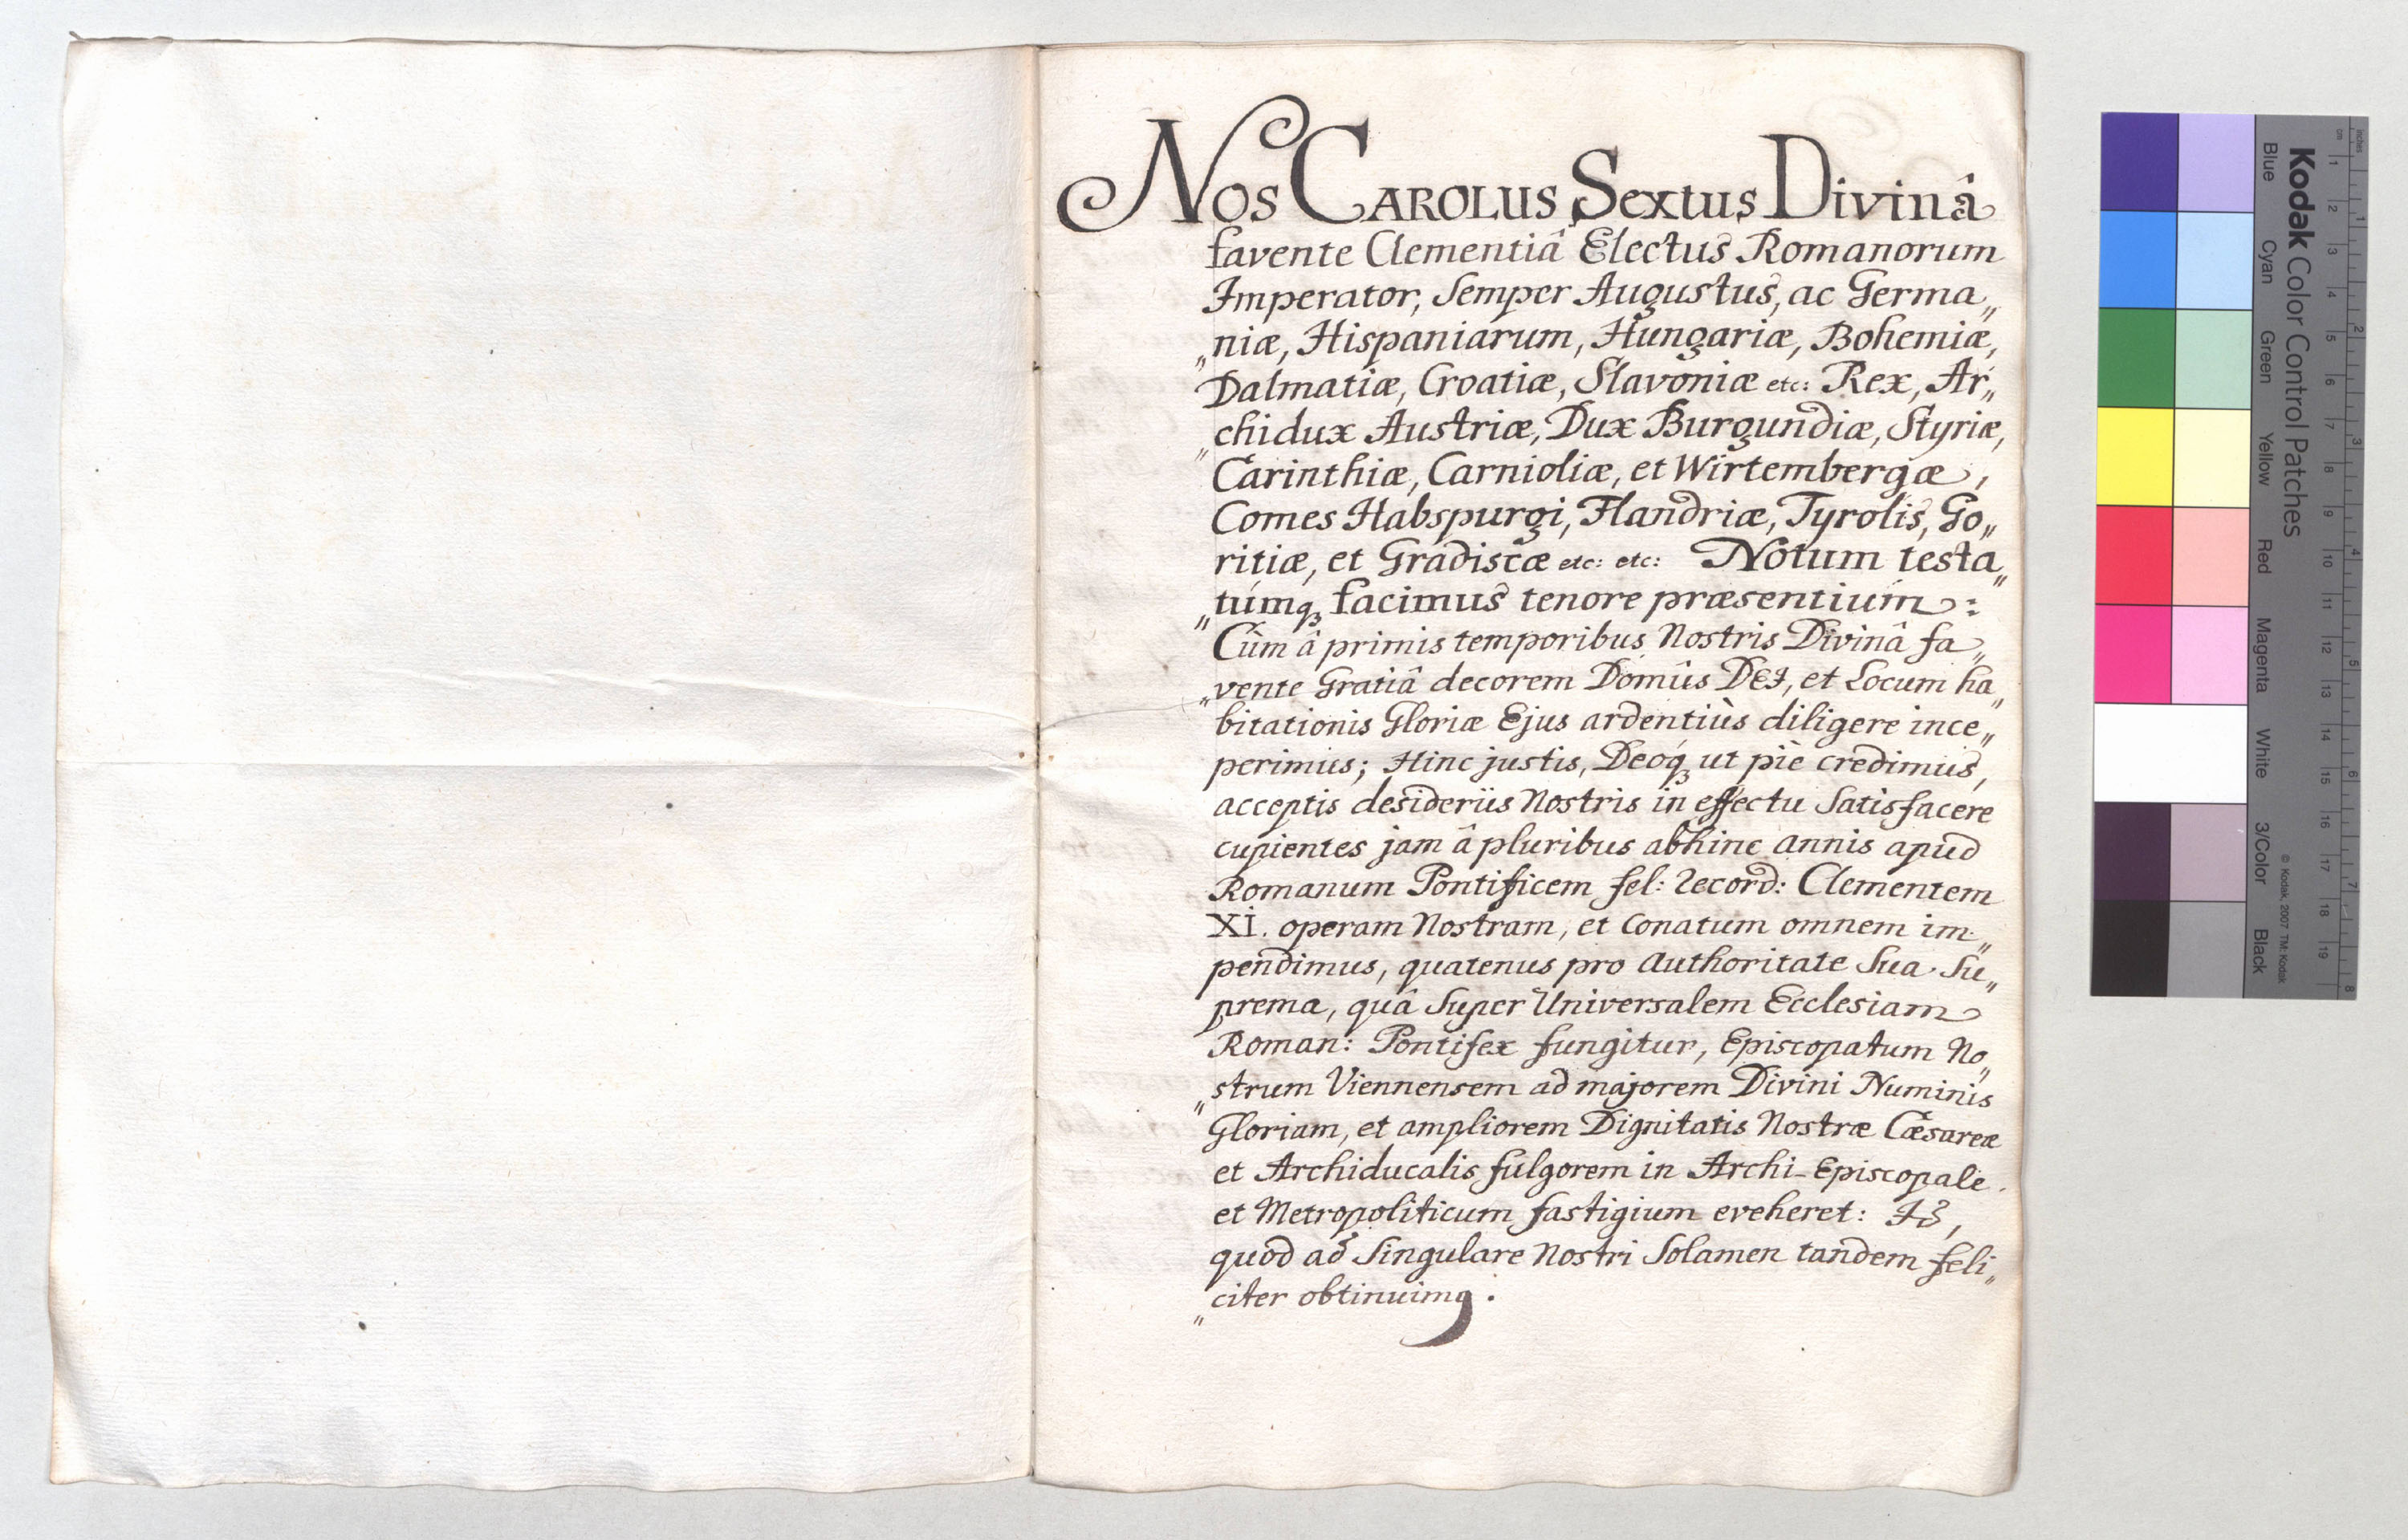 Nos Carolus Sextus Divinâ
favente Clementiâ Electus Romanorum
Imperator, Semper Augustus, ac Germa„
„niæ, Hispaniarum, Hungariæ, Bohemiæ,
Dalmatiæ, Croatiæ, Slavoniæ etc: Rex, Ar„
„chidux Austriæ, Dux Burgundiæ, Styriæ,
Carinthiæ, Carnioliæ, et Wirtembergæ,
Comes Habspurgi, Flandriæ, Tyrolis, Go„
ritiæ, et Gradiscæ etc: etc: Notum testa„
„túmqꝫ facimus tenore præsentium:
Cùm â primis temporibus Nostris Divinâ fa„
„vente Gratiâ decorem Domûs DEI, et Locum ha„
bitationis Gloriæ Ejus ardentiùs diligere ince„
perimus; Hinc justis, Deoqꝫ ut piè credimus,
acceptis desideriis Nostris in effectu Satisfacere
cupientes jam â pluribus abhinc annis apud
Romanum Pontificem fel: record: Clementem
XI. operam Nostram, et Conatum omnem im„
pendimus, quatenus pro Authoritate Sua Su„
prema, quâ Super Universalem Ecclesiam
Roman: Pontifex fungitur, Episcopatum No„
„strum Viennensem ad majorem Divini Numinis
Gloriam, et ampliorem Dignitatis Nostræ Cæsareæ
et Archiducalis fulgorem in Archi-Episcopale
et Metropoliticum fastigium eveheret: Id,
quod ad Singulare Nostri Solamen tandem feli„
„citer obtinuimꝰ.
Kodak Color Control Patches
Blue Cyan Green Yellow Red Magenta White 3/Color Black
© Kodak, 2007 TM: Kodak
cm 1 2 3 4 5 6 7 8 9 10 11 12 13 14 15 16 17 18 19
inches 1 2 3 4 5 6 7 8